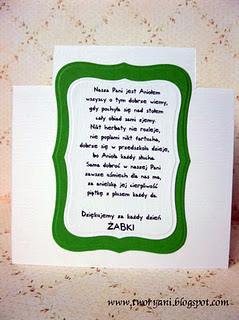 Nasza Pani jest Aniołem
wszyscy o tym dobrze wiemy,
gdy pochyla się nad stołem
cały obiad sami zjemy.
Nikt herbaty nie rozleje,
nie poplami nikt fartucha,
dobrze się w przedszkolu dzieje,
bo Anioła każdy słucha.
Sama dobroć w naszej Pani
zawsze uśmiech dla nas ma,
za anielską jej cierpliwość
piątkę z plusem każdy da.
Dziękujemy za każdy dzień
ŻABKI
www.tworyani.blogspot.com